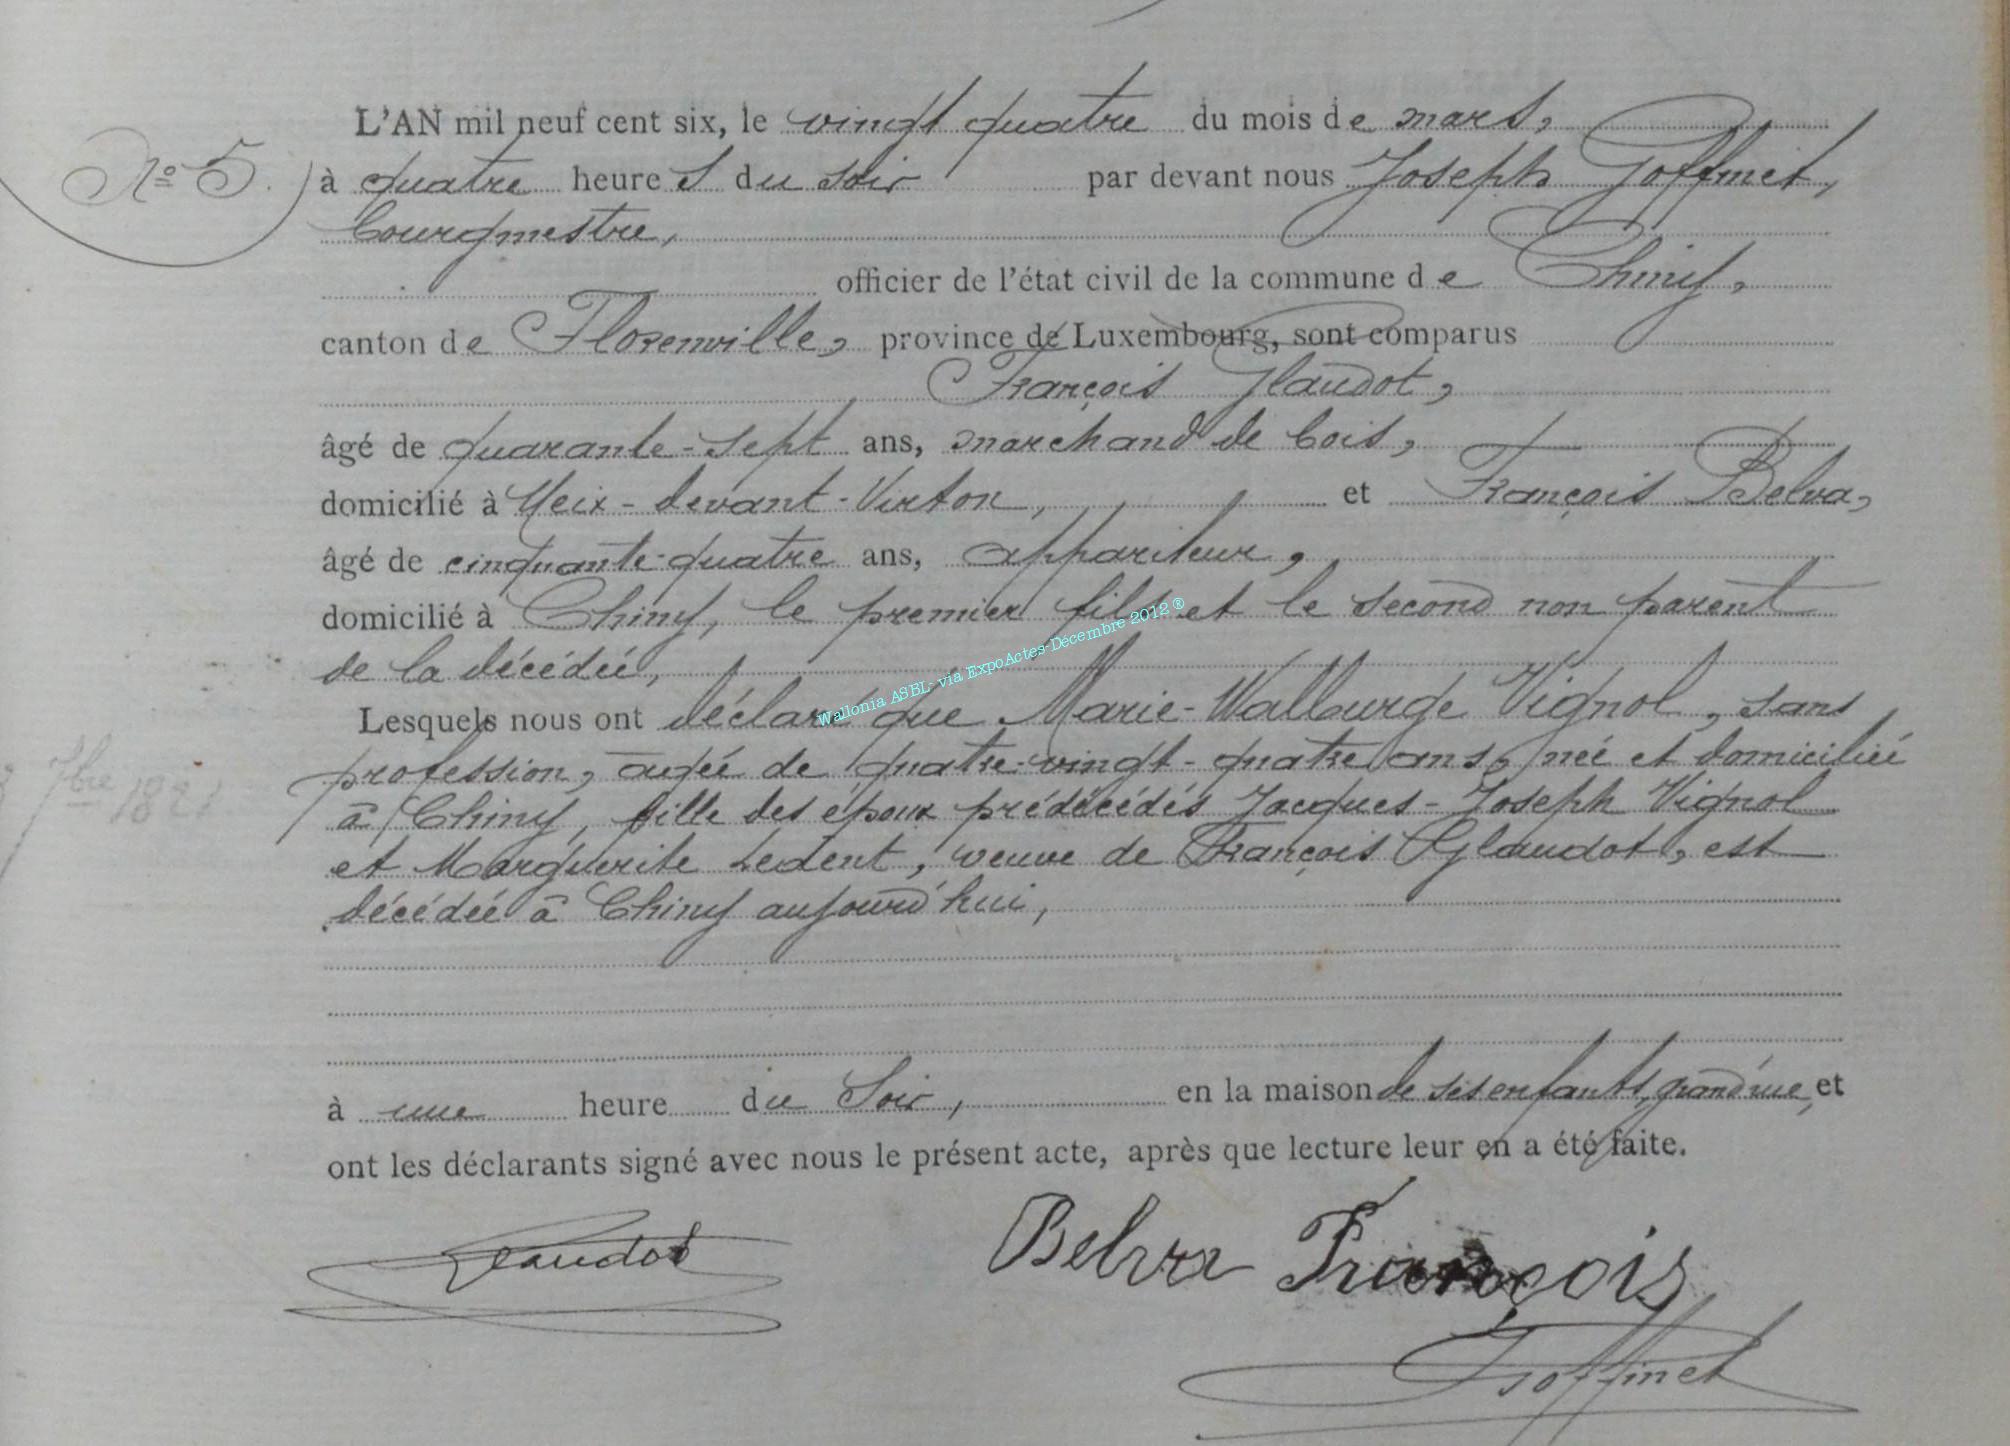 L'AN mil neuf cent six, le vingt quatre du mois de mars,
No 5. à quatre heures du soir par devant nous Joseph Goffinet,
bourgmestre,
officier de l'état civil de la commune de Chiny,
canton de Florenville, province de Luxembourg, sont comparus
François Glaudot,
âgé de quarante-sept ans, marchand de bois,
domicilié à Meix-devant-Virton, et François Belva,
âgé de cinquante-quatre ans, appariteur,
domicilié à Chiny, le premier fils et le second non parent
de la décédée,
Wallonia ASBL- via ExpoActes-Décembre 2012 ®
Lesquels nous ont déclaré que Marie-Wallburge Vignol, sans
profession, agée de quatre-vingt-quatre ans, née et domiciliée
7bre 1821
à Chiny, fille des époux prédécédés Jacques-Joseph Vignol
et Marguerite Ledent, veuve de François Glaudot, est
décédée à Chiny aujourd'hui,
à une heure du soir, en la maison de ses enfants, grand'rue, et
ont les déclarants signé avec nous le présent acte, après que lecture leur en a été faite.
Glaudot
Belva François
Goffinet